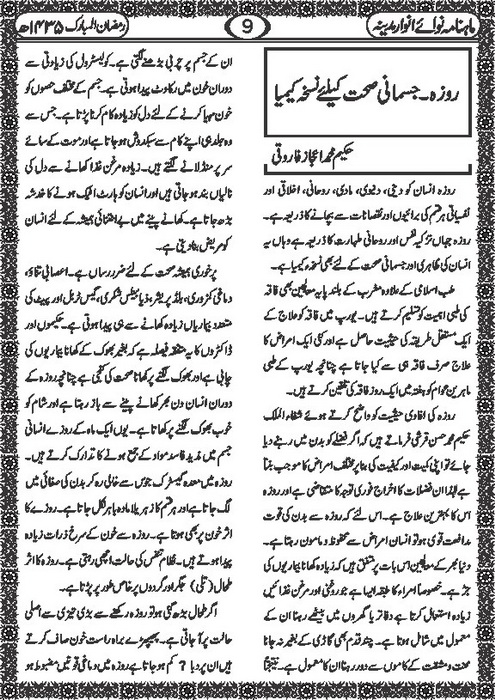 ماہنامہ نوائے انوار مدینہ
9
رمضان المبارک ۱۴۳۵ھ
روزہ۔ جسمانی صحت کیلئے نسخہ کیمیا
حکیم محمد اعجاز فاروقی
روزہ انسان کو دینی، دنیوی، مادی، روحانی، اخلاقی اور
نفسیاتی ہر قسم کی برائیوں اور نقصانات سے بچانے کا ذریعہ ہے۔
روزہ جہاں تزکیہ نفس اور روحانی طہارت کا ذریعہ ہے وہاں یہ
انسان کی ظاہری اور جسمانی صحت کے لئے بھی نسخہ کیمیا ہے۔
طب اسلامی کے علاوہ مغرب کے بلند پایہ معالجین بھی فاقہ
کی طبی اہمیت کو تسلیم کرتے ہیں۔ یورپ میں فاقہ کو علاج کے
ایک مستقل طریقہ کی حیثیت حاصل ہے اور کئی ایک امراض کا
علاج صرف فاقہ ہی سے کیا جاتا ہے چنانچہ یورپ کے طبی
ماہرین عوام کو ہفتہ میں ایک روز فاقہ کی تلقین کرتے ہیں۔
روزہ کی افادی حیثیت کو واضح کرتے ہوئے شفاء الملک
حکیم محمد حسن قرشی فرماتے ہیں کہ اگر فضلے کو بدن میں رہنے دیا
جائے تو اپنی کیت اور کیفیت کی بناء پر مختلف امراض کا موجب بنتا
ہے لہٰذا ان فضلات کا اخراج فوری توجہ کا متقاضی ہے اور روزہ
اس کا بہترین علاج ہے۔ اس لئے کہ روزہ سے بدن کی قوت
مدافعت قوی ہو تو انسان امراض سے محفوظ و مامون رہتا ہے۔
دنیا بھر کے معالجین اس بات پر متفق ہیں کہ زیادہ کھانا بیماریوں کی
جڑ ہے۔ خصوصاً امراء کا طبقہ ایسا ہے جو روغنی اور مرغن غذائیں
زیادہ استعمال کرتا ہے دفاتر یا گھروں میں بیٹھے رہنا ان کے
معمول میں شامل ہوتا ہے۔ چند قدم بھی گاڑی کے بغیر نہ جانا
محنت و مشقت کے کاموں سے دور رہنا ان کا معمول ہے۔ نتیجتاً
ان کے جسم پر چربی بڑھنے لگتی ہے۔ کولیسٹرول کی زیادتی سے
دوران خون میں رکاوٹ پیدا ہوتی ہے۔ جسم کے مختلف حصوں کو
خون مہیا کرنے کے لئے دل کو زیادہ کام کرنا پڑتا ہے۔ جس سے
وہ جلد ہی اپنے کام سے سبکدوش ہو جاتا ہے اور موت کے سائے
سر پر منڈلانے لگتے ہیں۔ زیادہ مرغن غذا کھانے سے دل کی
نالیاں بند ہو جاتی ہیں اور انسان کو ہارٹ اٹیک ہونے کا خدشہ
بڑھ جاتا ہے۔ کھانے پینے میں بے اعتنائی ہمیشہ کے لئے انسان
کو مریض بنا دیتی ہے۔
پر خوری ہمیشہ صحت کے لئے ضرر رساں ہے۔ اعصابی تناؤ،
دماغی کمزوری، بلڈ پریشر، ذیابیطس شکری، گیس ٹربل اور پیٹ کی
متعدد بیماریاں زیادہ کھانے سے ہی پیدا ہوتی ہے۔ حکیموں اور
ڈاکٹروں کا یہ متفقہ فیصلہ ہے کہ بغیر بھوک کے کھانا بیماریوں کی
چابی ہے اور بھوک لگنے پر کھانا صحت کی کنجی ہے چنانچہ روزہ کے
دوران انسان دن بھر کھانے پینے سے باز رہتا ہے اور شام کو
خوب بھوک لگنے پر کھاتا ہے۔ یوں ایک ماہ کے روزے انسانی
جسم میں مذید فاسد مواد کے جمع ہونے کا تدارک کرتے ہیں۔
روزہ میں معدہ گیسٹرک جوس سے خالی رہ کر بدن کی صفائی میں
لگ جاتا ہے اور ہر قسم کا زہریلا مادہ باہر نکل جاتا ہے۔ روزے کا
اثر خون پر بھی ہوتا ہے۔ روزہ سے خون کے سرخ ذرات زیادہ
پیدا ہوتے ہیں۔ نظام تنفس کی حالت اچھی رہتی ہے۔ روزہ کا اثر
طحال (تلی) جگر اور گردوں پر خاص طور پر پڑتا ہے۔
اگر طحال بڑھ گئی ہو تو روزہ رکھنے سے بڑی تیزی سے اصلی
حالت پر آ جاتی ہے۔ پھیپھڑے براہ راست خون صاف کرتے
ہیں ان پر دباؤ کم ہو جاتا ہے روزہ میں دماغی قوتیں مضبوط ہو